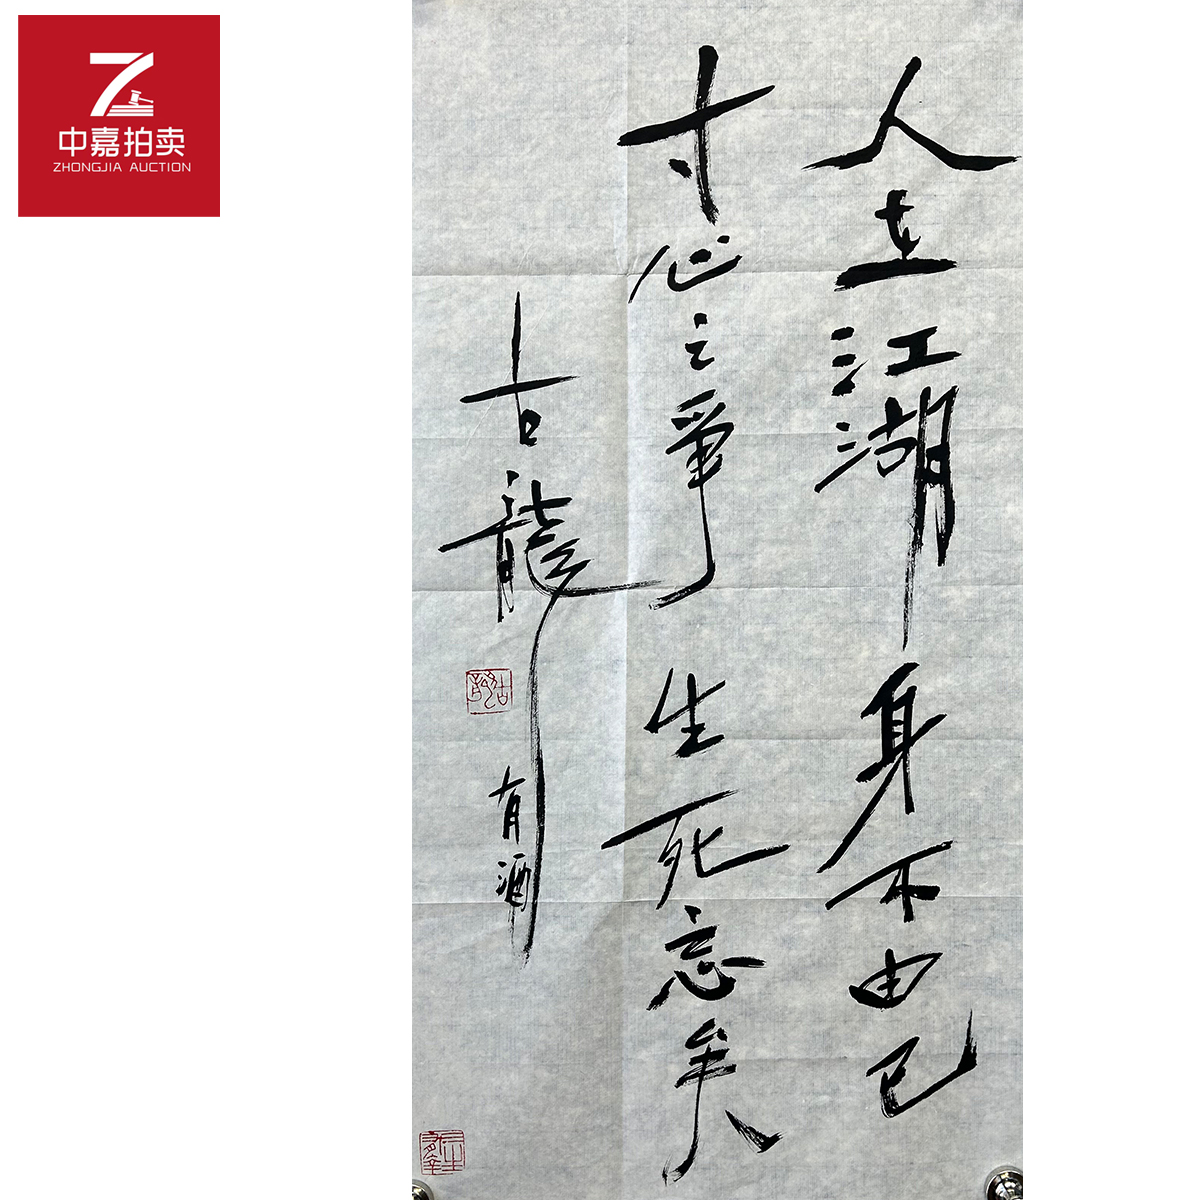 中嘉拍卖
ZHONGJIA AUCTION
人在江湖身不由已
寸心之争生死忘矣
古龍
有酒